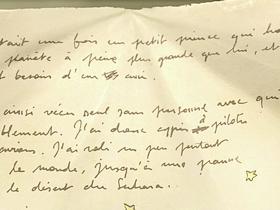 était une fois un petit prince qui ha
planète à peine plus grande que lui, et
besoin d'un ami.
ainsi vécu seul sans personne avec qui
blement. J'ai donc appris à pilote
avions. J'ai volé un peu partout
le monde, jusqu'à une panne
le désert du Sahara.